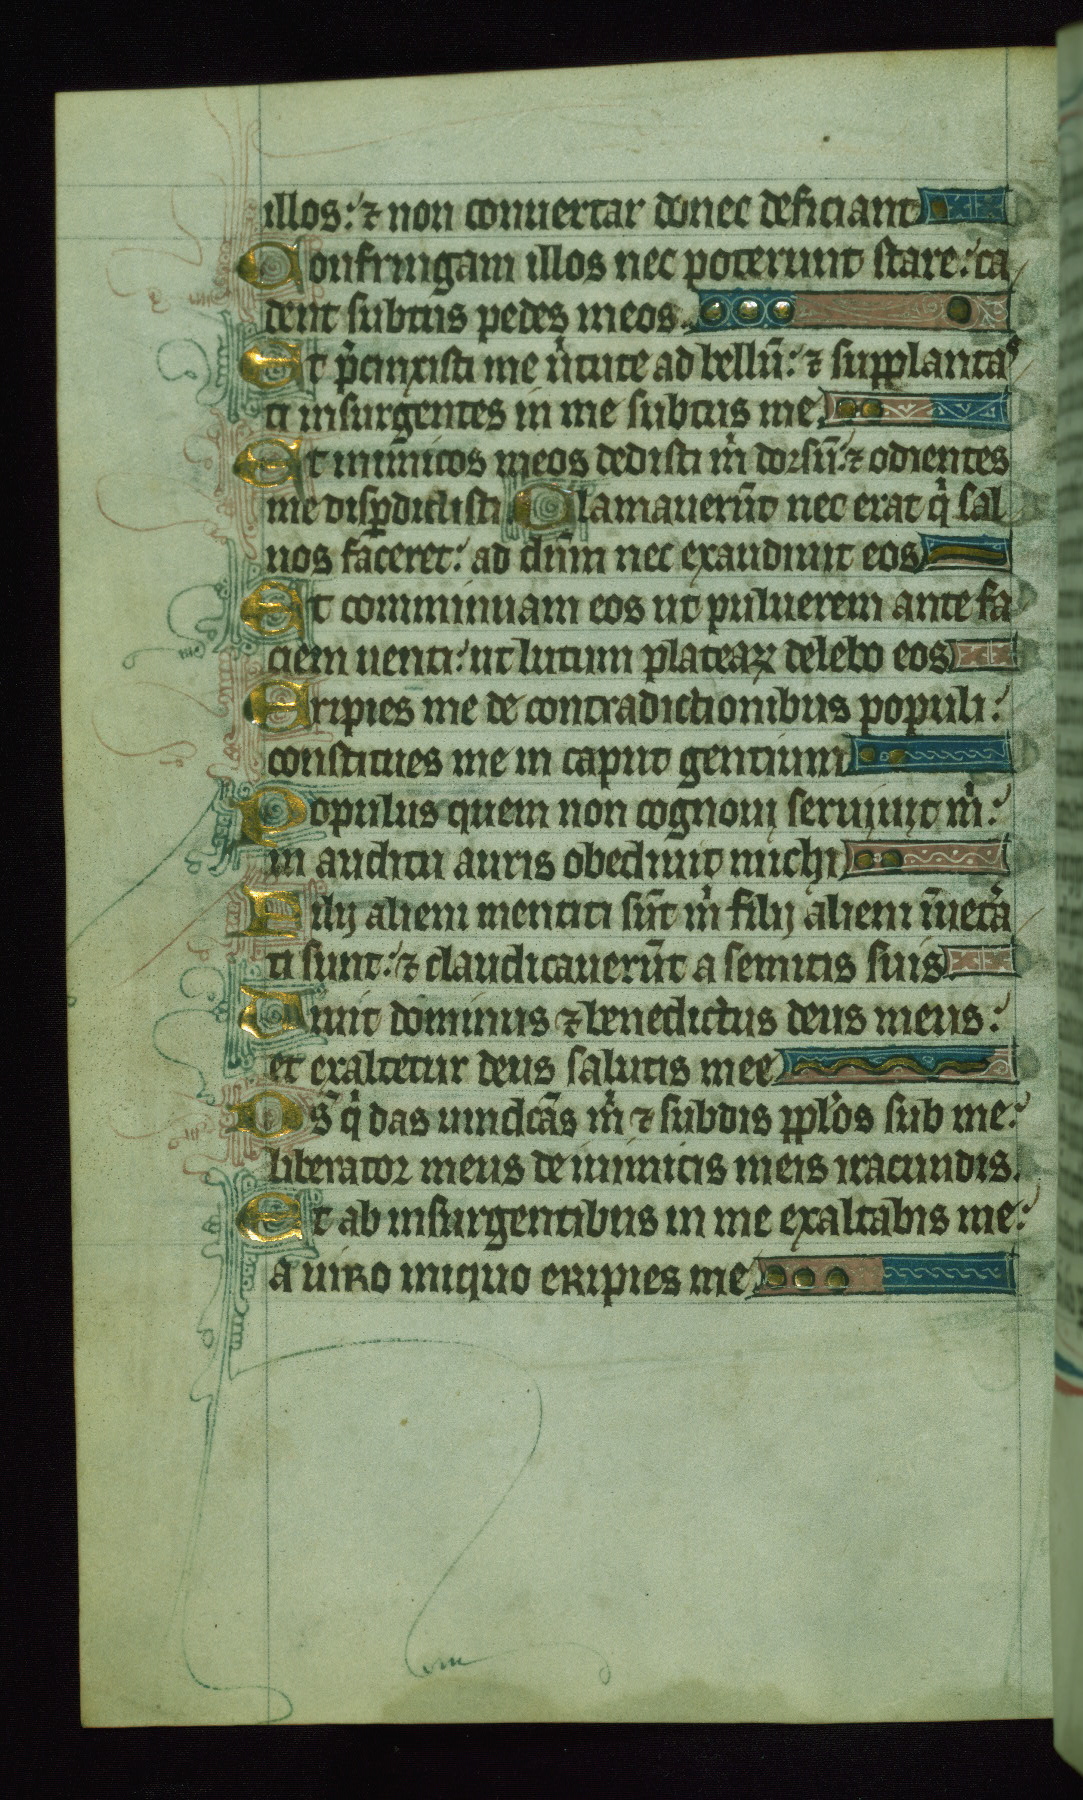 illos: ⁊ non conuertar donec deficiant
Confringam illos nec poterunt stare: ca
dent subtus pedes meos
Et p̄cinxisti me ũtute ad bellũ: ⁊ supplantaˢ
ti insurgentes in me subtus me
Et inimicos meos dedisti m̍ dorsũ: ⁊ odientes
me disꝑdidisti Clamauerũt nec erat q̍ sal
uos faceret: ad dñm nec exaudiuit eos
Et comminuam eos ut puluerem ante fa
ciem uenti: ut lutum plateaꝝ delebo eos
Eripies me de contradictionibus populi:
constitues me in caput gentium
Populus quem non cognoui seruiuit m̍:
in auditu auris obediuit michi
Filij alieni mentiti sũt m̍ filij alieni ĩuetã
ti sunt: ⁊ claudicauerũt a semitis suis
Uiuit dominus ⁊ benedictus deus meus:
et exaltetur deus salutis mee
Ds̃ q̍ das uindictãs m̍ ⁊ subdis pplos sub me:
liberator meus de inimicis meis iracundis.
Et ab insurgentibus in me exaltabis me:
a uiro iniquo eripies me